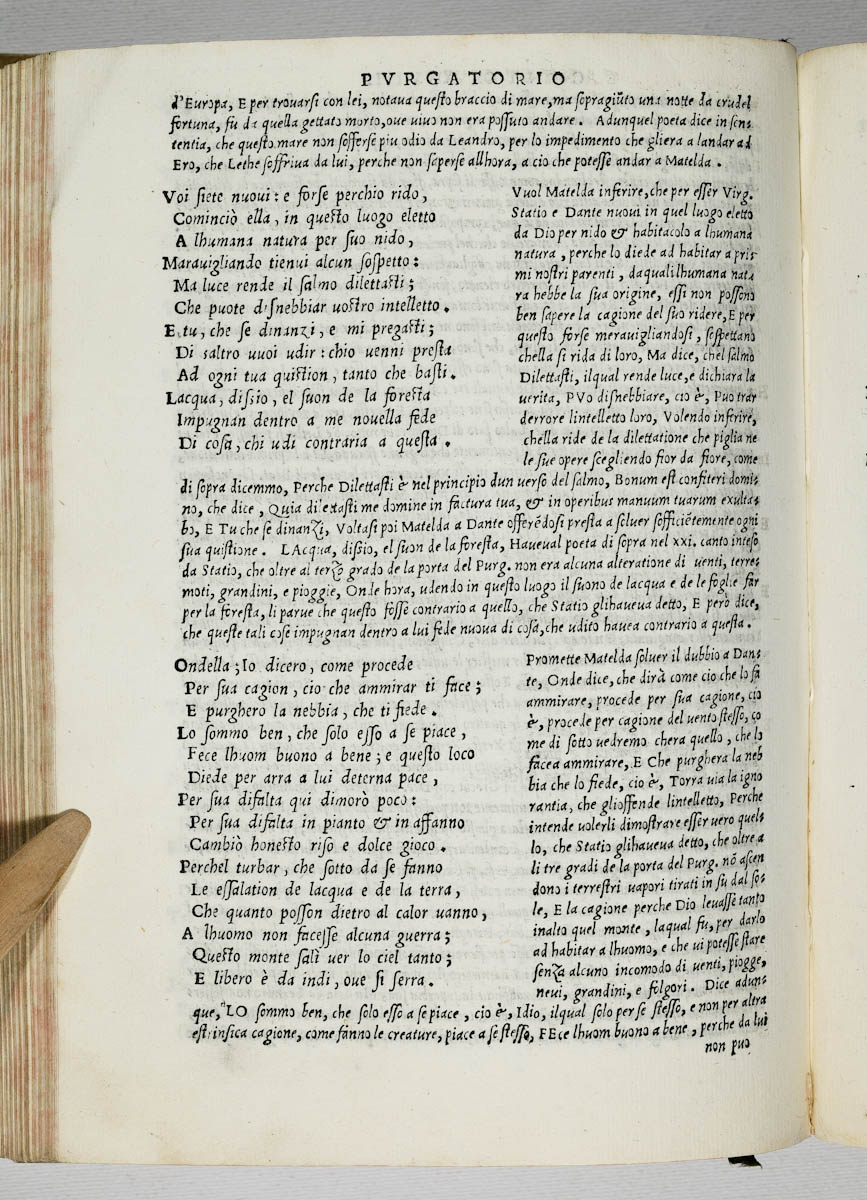 PVRGATORIO
d'Europa, E per trouarsi con lei, notaua questo braccio di mare, ma sopragiũto una notte da crudel
fortuna, fu da quella gettato morto, oue uiuo non era possuto andare. Adunquel poeta dice in sen=
tentia, che questo mare non sofferse piu odio da Leandro, per lo impedimento che gliera a landar ad
Ero, che Lethe soffriua da lui, perche non saperse allhora, a cio che potesse andar a Matelda.
Voi siete nuoui: e forse perchio rido,
Cominciò ella, in questo luogo eletto
A lhumana natura per suo nido,
Marauigliando tienui alcun sospetto:
Ma luce rende il salmo dilettasti;
Che puote disnebbiar uostro intelletto.
E tu, che se dinanzi, e mi pregasti;
Di saltro uuoi udir: chio uenni presta
Ad ogni tua quistion, tanto che basti.
Lacqua, dissio, el suon de la foresta
Impugnan dentro a me nouella fede
Di cosa, chi udi contraria a questa.
Vuol Matelda inferire, che per esser Virg.
Statio e Dante nuoui in quel luogo eletto
da Dio per nido & habitacolo a lhumana
natura, perche lo diede ad habitar a pri=
mi nostri parenti, da quali lhumana natu
ra hebbe la sua origine, essi non possono
ben sapere la cagione del suo ridere, E per
questo forse merauigliandosi, sospettano
chella si rida di loro, Ma dice, chel salmo
Dilettasti, ilqual rende luce, e dichiara la
uerita, PVo disnebbiare, cio è, Puo trar
derrore lintelletto loro, Volendo inferire,
chella ride de la dilettatione che piglia ne
le sue opere scegliendo fior da fiore, come
di sopra dicemmo, Perche Dilettasti è nel principio dun uerso del salmo, Bonum est confiteri domi=
no, che dice, Quia dilettasti me domine in factura tua, & in operibus manuum tuarum exulta=
bo, E Tu che se dinanzi, Voltasi poi Matelda a Dante offerẽdosi presta a soluer sofficiẽtemente ogni
sua quistione. LAcqua, dissio, el suon de la foresta, Haueual poeta di sopra nel xxi. canto inteso
da Statio, che oltre al terzo grado de la porta del Purg. non era alcuna alteratione di uenti, terre=
moti, grandini, e pioggie, Onde hora, udendo in questo luogo il suono de lacqua e de le foglie far
per la foresta, li parue che questo fosse contrario a quello, che Statio glihaueua detto, E però dice,
che queste tali cose impugnan dentro a lui fede nuoua di cosa, che udito hauea contrario a questa.
Ondella; Io dicero, come procede
Per sua cagion, cio che ammirar ti face;
E purghero la nebbia, che ti fiede.
Lo sommo ben, che solo esso a se piace,
Fece lhuom buono a bene; e questo loco
Diede per arra a lui deterna pace,
Per sua difalta qui dimorò poco:
Per sua difalta in pianto & in affanno
Cambiò honesto riso e dolce gioco.
Perchel turbar, che sotto da se fanno
Le essalation de lacqua e de la terra,
Che quanto posson dietro al calor uanno,
A lhuomo non facesse alcuna guerra;
Questo monte salì uer lo ciel tanto;
E libero è da indi, oue si serra.
Promette Matelda soluer il dubbio a Dan=
te, Onde dice, che dirà come cio che lo fa
ammirare, procede per sua cagione, cio
è, procede per cagione del uento stesso, co
me di sotto uedremo chera quello, che lo
facea ammirare, E Che purghera la neb
bia che lo fiede, cio è, Torra uia la igno
rantia, che glioffende lintelletto, Perche
intende uolerli dimostrare esser uero quel=
lo, che Statio glihaueua detto, che oltre a
li tre gradi de la porta del Purg. nõ ascen
dono i terrestri uapori tirati in su dal so=
le, E la cagione perche Dio leuasse tanto
inalto quel monte, laqual fu, per darlo
ad habitar a lhuomo, e che ui potesse stare
senza alcuno incomodo di uenti, piogge,
neui, grandini, e folgori. Dice adun=
que, LO sommo ben, che solo esso a se piace, cio è, Idio, ilqual solo per se stesso, e non per altra
estrinsica cagione, come fanno le creature, piace a se stesso, FEce lhuom buono a bene, perche da lui
non puo